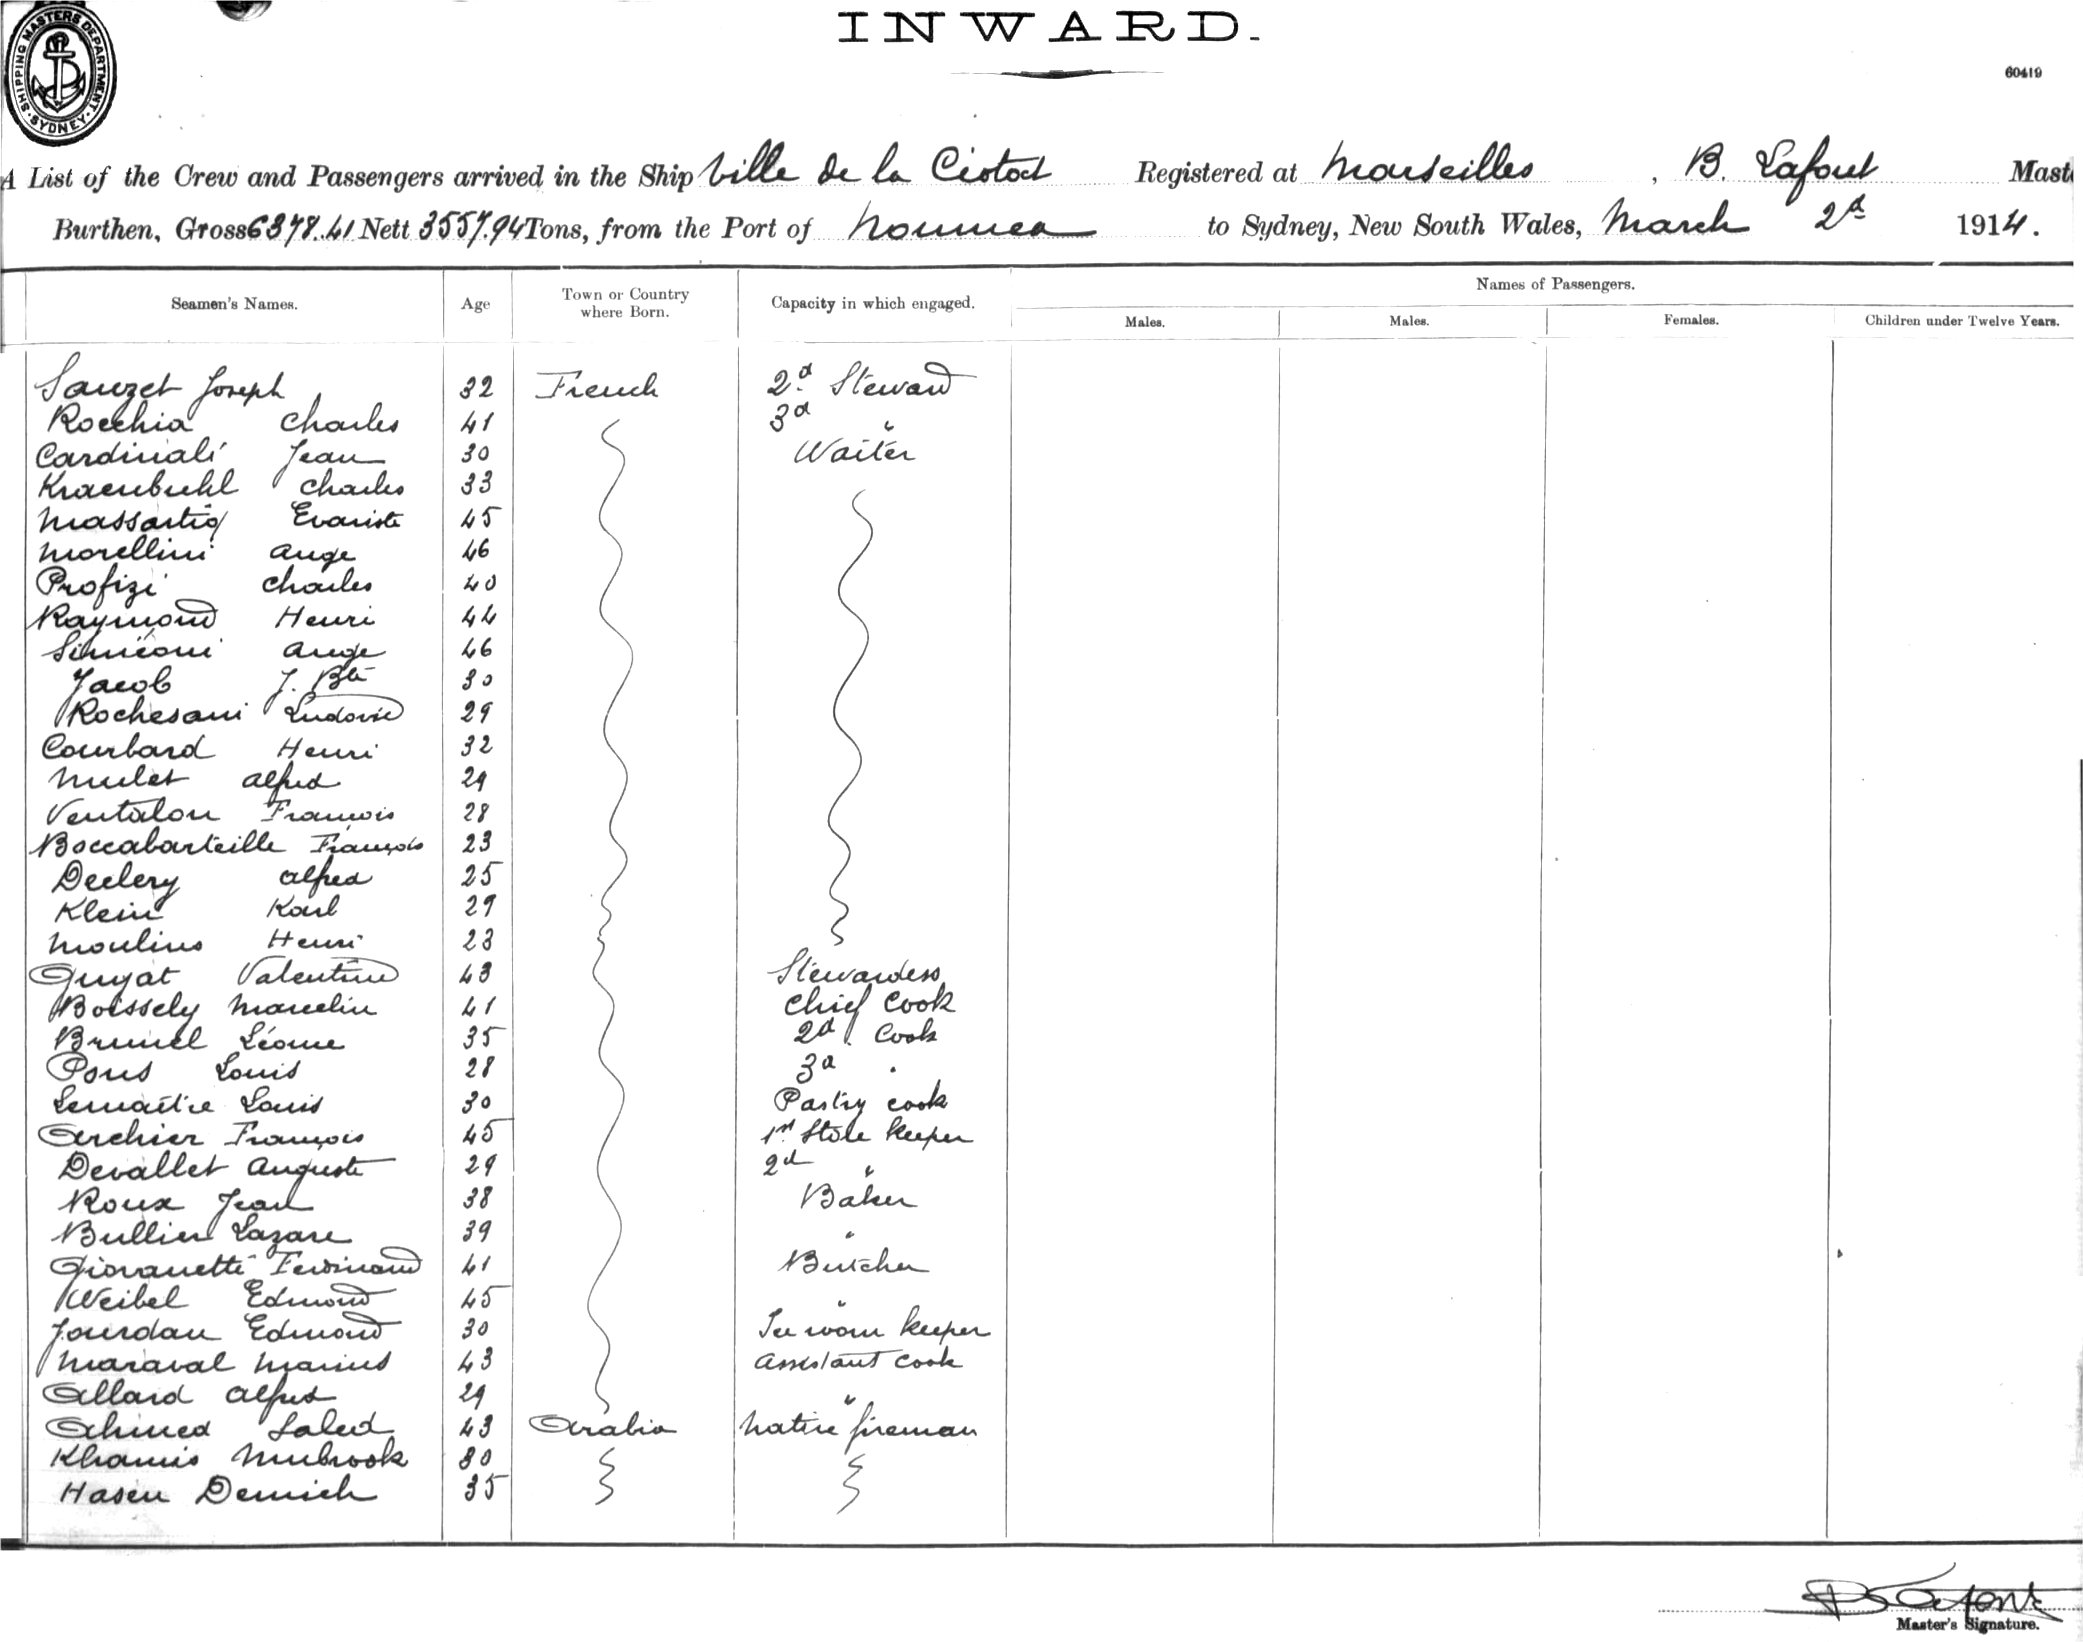 INWARD.
SHIPPING MASTERS DEPARTMENT. SYDNEY.
60419
A List of the Crew and Passengers arrived in the Ship Ville de la Ciotat Registered at Marseilles, B. Lafont Mast
Burthen, Gross 6378.41 Nett 3557.94 Tons, from the Port of Noumea to Sydney, New South Wales, March 2d 1914.
Seamen's Names. Age Town or Country where Born. Capacity in which engaged. Names of Passengers.
Males. Males. Females. Children under Twelve Years.
Sauzet Joseph 32 French 2d Steward
Rocchia Charles 41 3d "
Cardinali Jean 30 Waiter
Kraenbuhl Charles 33
Massartig Evariste 45
Morellini Ange 46
Profizi Charles 40
Raymond Henri 44
Simeoni Ange 46
Jacob J. Bte 30
Rochesani Ludovic 29
Courbard Henri 32
Mulet Alfred 29
Ventalon François 28
Boccabarteille François 23
Declery Alfred 25
Klein Karl 29
Moulins Henri 23
Guyat Valentine 43 Stewardess
Boissely Marcelin 41 Chief Cook
Brunel Léonce 35 2d Cook
Pons Louis 28 3d "
Lemaître Louis 30 Pastry cook
Archier François 45 1st Store keeper
Devallet Auguste 29 2d "
Roux Jean 38 Baker
Bullier Lazare 39 "
Giovanetti Ferdinand 41 Butcher
Weibel Edmond 45 "
Jourdan Edmond 30 keeper
Maraval Marius 43 Assistant cook
Allard Alfred 29 "
Ahmed Saled 43 Arabia Native fireman
Khamis Mubrook 30
Hasen Dervich 35
B Lafont
Master's Signature.